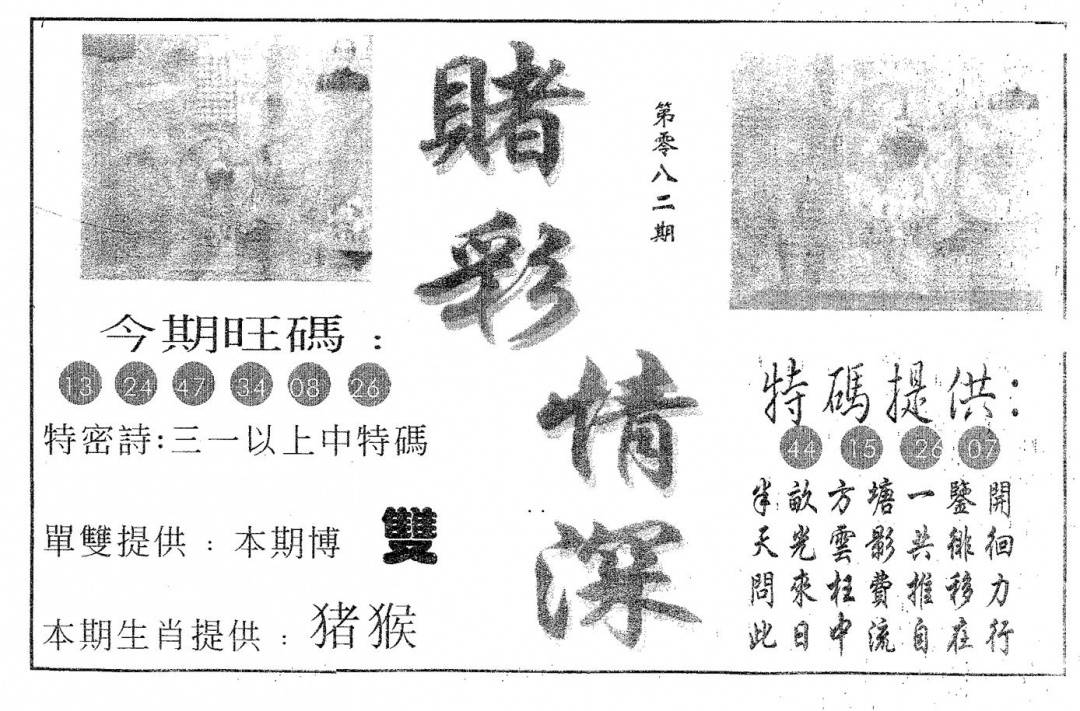 賭彩情深
第零八二期
今期旺碼：
13 24 47 34 08 26
特密詩:三一以上中特碼
單雙提供：本期博 雙
本期生肖提供：猪猴
特碼提供:
44 15 26 07
半畝方塘一鑒開
天光雲影共徘徊
問來枉費推移力
此日中流自在行